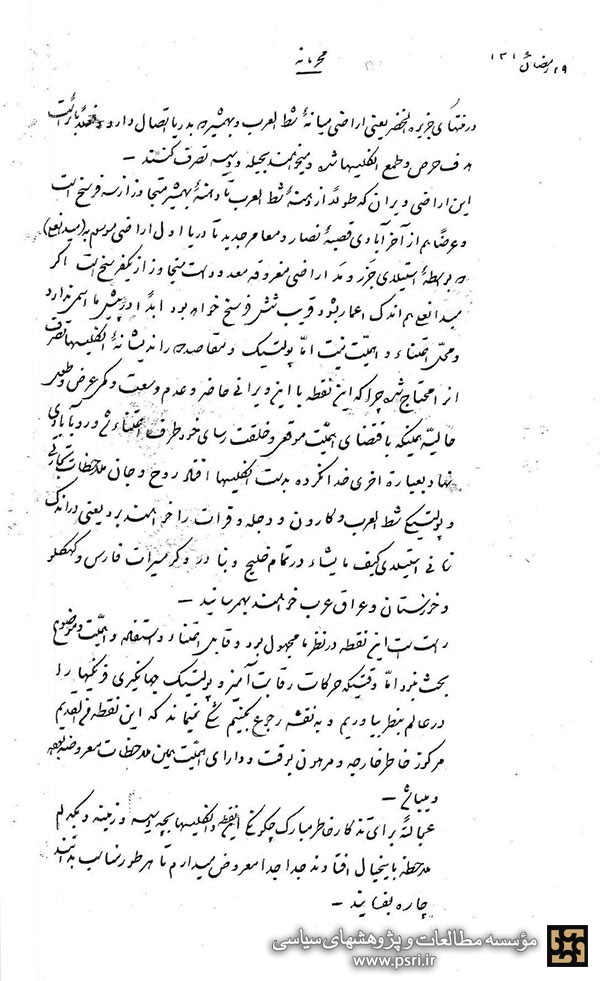 ۲۹ رمضان ۱۳۱
محرمانه
در منتهای جزیرة الخضر یعنی اراضی میانهٔ شط العرب و بهمشیر که بدریا اتصال دارد نقطه‌ایست
هدف حرص و طمع انگلیسها شده و میخواهند بحیله و دسیسه تصرف کنند —
این اراضی ویران که طولاً از دهنهٔ شط العرب تا دهنهٔ بهمشیر متجاوز از سه فرسخ است
و عرضاً هم از آخر آبادی قصبهٔ نصار و معامر جدید تا دریا اول اراضی موسوم به (میدانفع)
که بواسطهٔ استیلای جزر و مد اراضی مغروقه معدود است متجاوز از یکفرسخ است اگر
میدانفع هم اندک اعمار بشود قریب شش فرسخ خواهد بود ابداً در پیش ما اسمی ندارد
و محل اعتناء و اهمیت نیست اما پولتیک و مقاصد دور اندیشانهٔ انگلیسها تصرف
آنرا محتاج شده چرا که این نقطه با این ویرانی حاضر و عدم وسعت و کمی عرض و طول
حالیه همینکه باقتضای اهمیت موقعی و خلقت رسای خود طرف اعتناء شد و رو بآبادی
نهاد بعبارة اخری خدا نکرده بدست انگلیسها افتاد روح و جان ملاحظات تجارتی
و پولتیکی شط العرب و کارون و دجله و فرات را خواهند برد یعنی در اندک
زمانی استیلای کیف مایشاء در تمام خلیج و بنادر و گرمسیرات فارس و کهکیلو
و خوزستان و عراق عرب خواهند بهمرسانید —
راست است این نقطه در نظر ما مجهول بود و قابل اعتناء و استفاده و اهمیت و موضوع
بحث نبود اما وقتیکه حرکات رقابت آمیز و پولتیک جهانگیری فرنگیها را
در عالم بنظر بیاوریم و به نقشه رجوع بکنیم شک نمیماند که این نقطه من القدیم
مرکوز خاطر خارجه و مرهون بوقت و دارای اهمیت همین ملاحظات معروضه بوده
و میباشد —
عجالةً برای تذکار خاطر مبارک چگونگی این نقطه و انگلیسها بچه دسیسه و زمینه و بکدام
ملاحظه باینخیال افتادند جدا جدا معروض میدارم تا هر طور مناسب بدانند
چاره بفرمایند —
مؤسسه مطالعات و پژوهشهای سیاسی
www.psri.ir